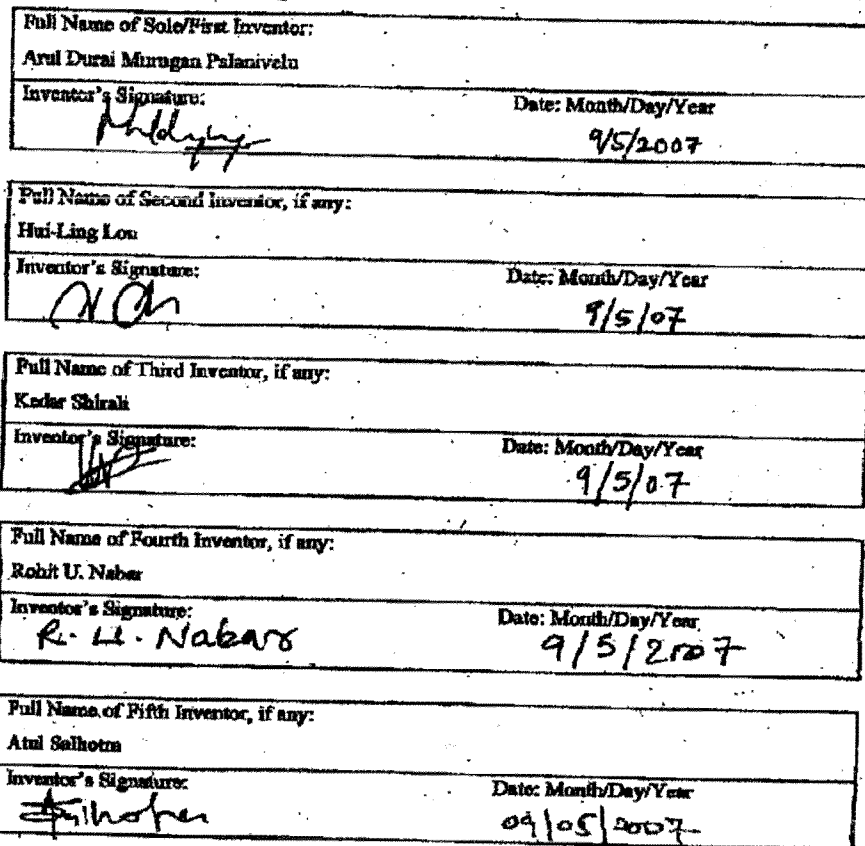 Full Name of Sole/First Inventor:
Arul Durai Murugan Palanivelu
Inventor's Signature:
Date: Month/Day/Year
9/5/2007
Full Name of Second Inventor, if any:
Hui-Ling Lou
Inventor's Signature:
Date: Month/Day/Year
9/5/07
Full Name of Third Inventor, if any:
Kedar Shirali
Inventor's Signature:
Date: Month/Day/Year
9/5/07
Full Name of Fourth Inventor, if any:
Rohit U. Nabar
Inventor's Signature:
Date: Month/Day/Year
R. U. Nabar
9/5/2007
Full Name of Fifth Inventor, if any:
Atul Salhotra
Inventor's Signature:
Date: Month/Day/Year
09/05/2007